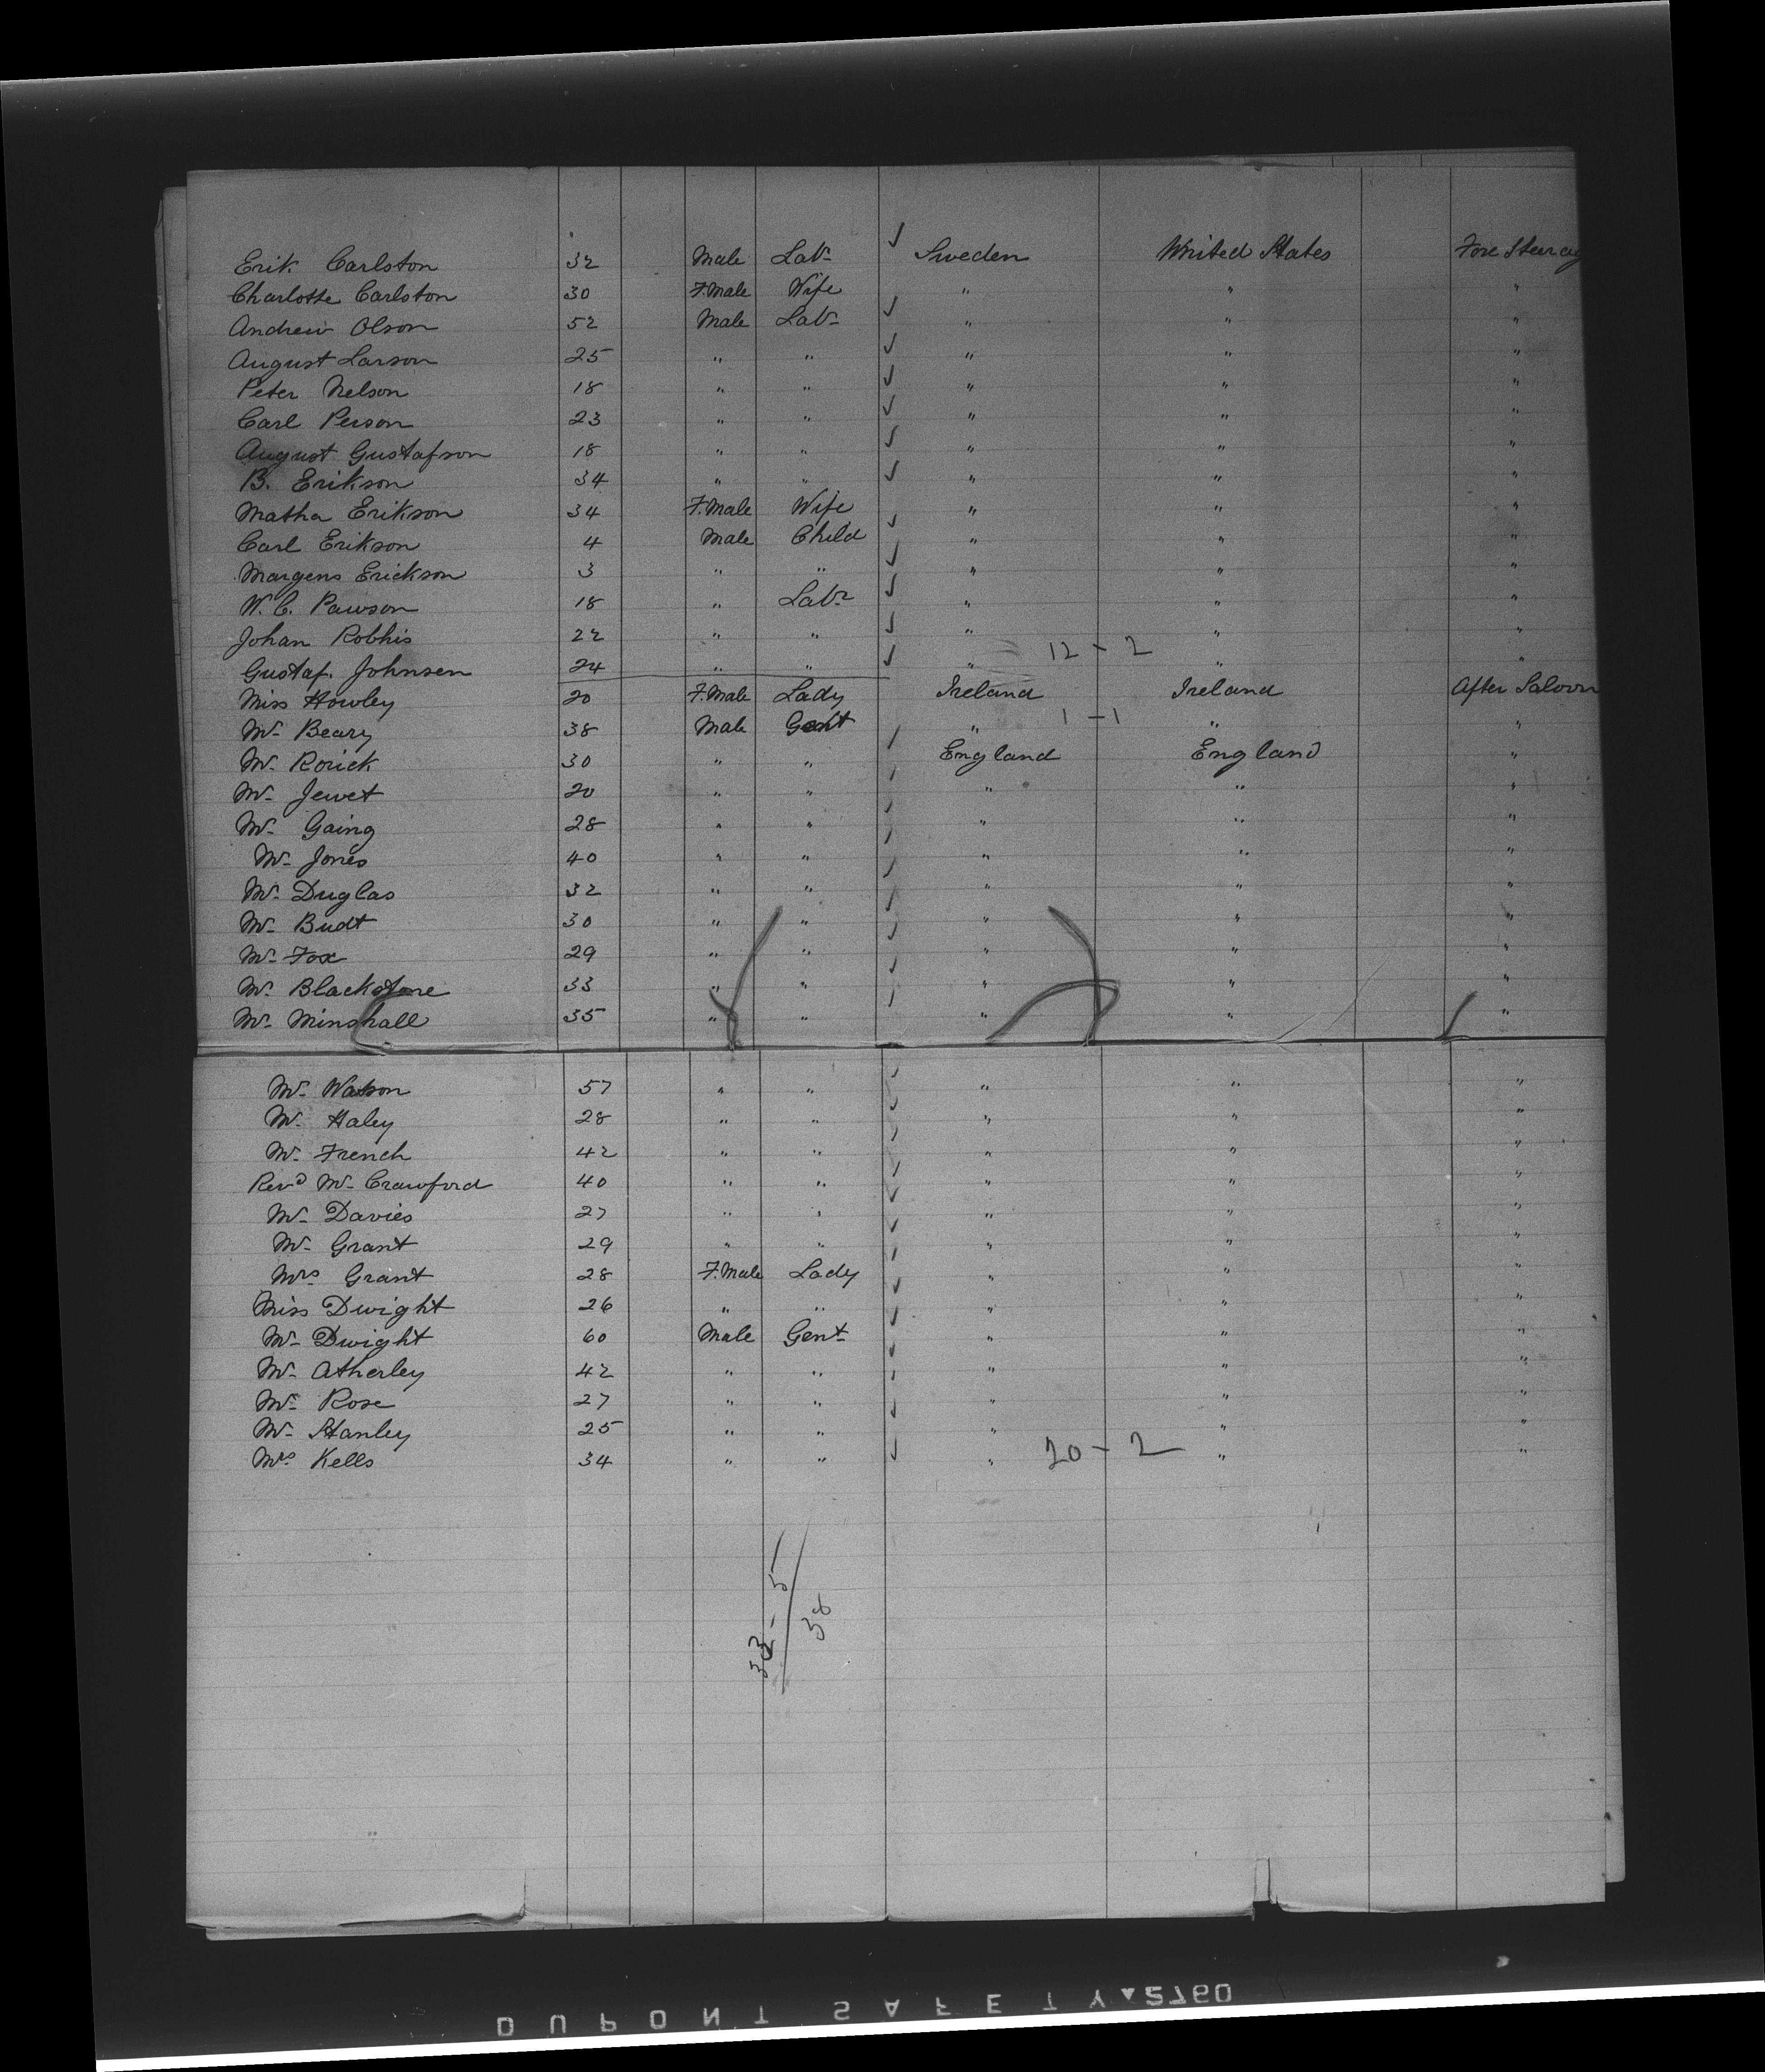 Erik Carlston 32 Male Labr Sweden United States Fore Steerag
Charlotte Carlston 30 F.Male Wife " " "
Andrew Olson 52 Male Labr " " "
August Larson 25 " " " " "
Peter Nelson 18 " " " " "
Carl Person 23 " " " " "
August Gustafson 18 " " " " "
B. Erikson 34 " " " " "
Matha Erikson 34 F.Male Wife " " "
Carl Erikson 4 Male Child " " "
Margens Erickson 3 " " " " "
W. C. Pawson 18 " Labr " " "
Johan Robhis 22 " " " " "
Gustaf. Johnsen 24 " " " 12 - 2 " "
Miss Howley 20 F.Male Lady Ireland Ireland After Saloon
Mr Beary 38 Male Gent " 1 - 1 " "
Mr Rorick 30 " " England England "
Mr Jewet 20 " " " " "
Mr Gaing 28 " " " " "
Mr Jones 40 " " " " "
Mr Duglas 32 " " " " "
Mr Budt 30 " " " " "
Mr Fox 29 " " " " "
Mr Blackstone 33 " " " " "
Mr Minshall 35 " " " " "
Mr Watson 57 " " " " "
Mr Haley 28 " " " " "
Mr French 42 " " " " "
Revd Mr Crawford 40 " " " " "
Mr Davies 27 " " " " "
Mr Grant 29 " " " " "
Mrs Grant 28 F.Male Lady " " "
Miss Dwight 26 " " " " "
Mr Dwight 60 Male Gent " " "
Mr Atherley 42 " " " " "
Mr Rose 27 " " " " "
Mr Stanley 25 " " " " "
Mrs Kells 34 " " " 20 - 2 " "
33 - 5
38
DUPONT SAFETY 2760